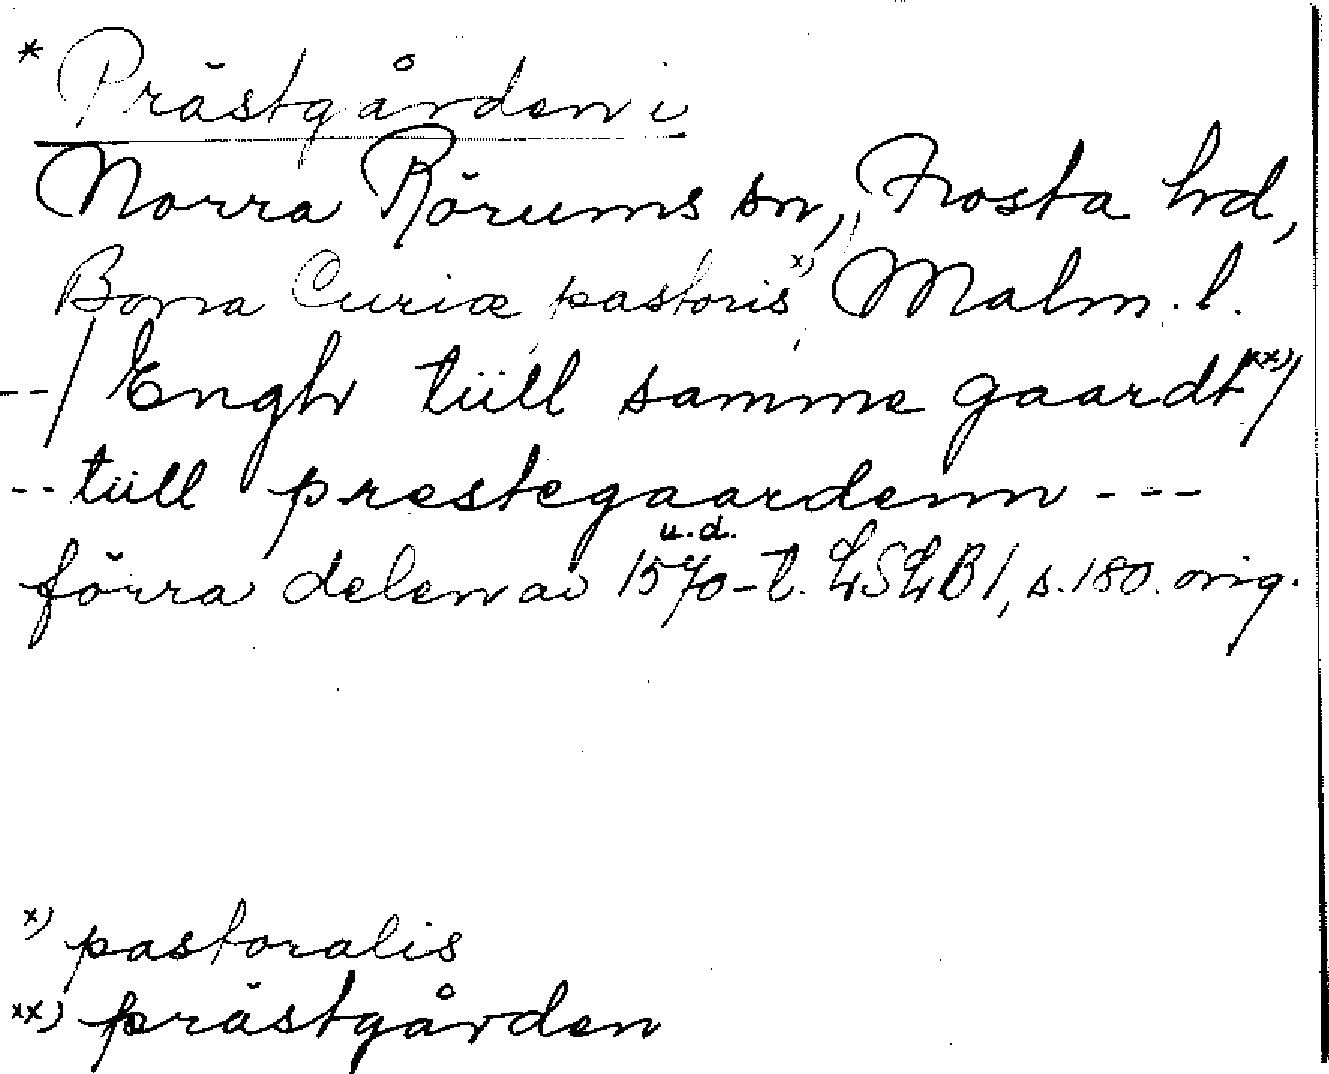 * Prästgården i
Norra Rörums sn, Frosta hd,
Bona Curiæ pastoris x) Malm. l.
--/ Engh tüll samme gaardt xx)/
-- tüll prestegaardenn ---
u.d.
förra delen av 1570-t. LSLB I, s. 180. orig.
x) pastoralis
xx) prästgården